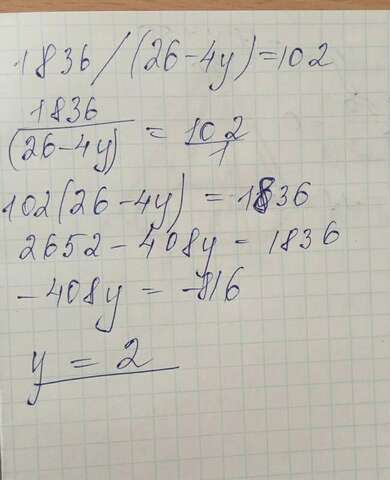 1836/(26-4y)=102
1836/(26-4y) = 102/1
102(26-4y) = 1836
2652-408y = 1836
-408y = -816
y = 2